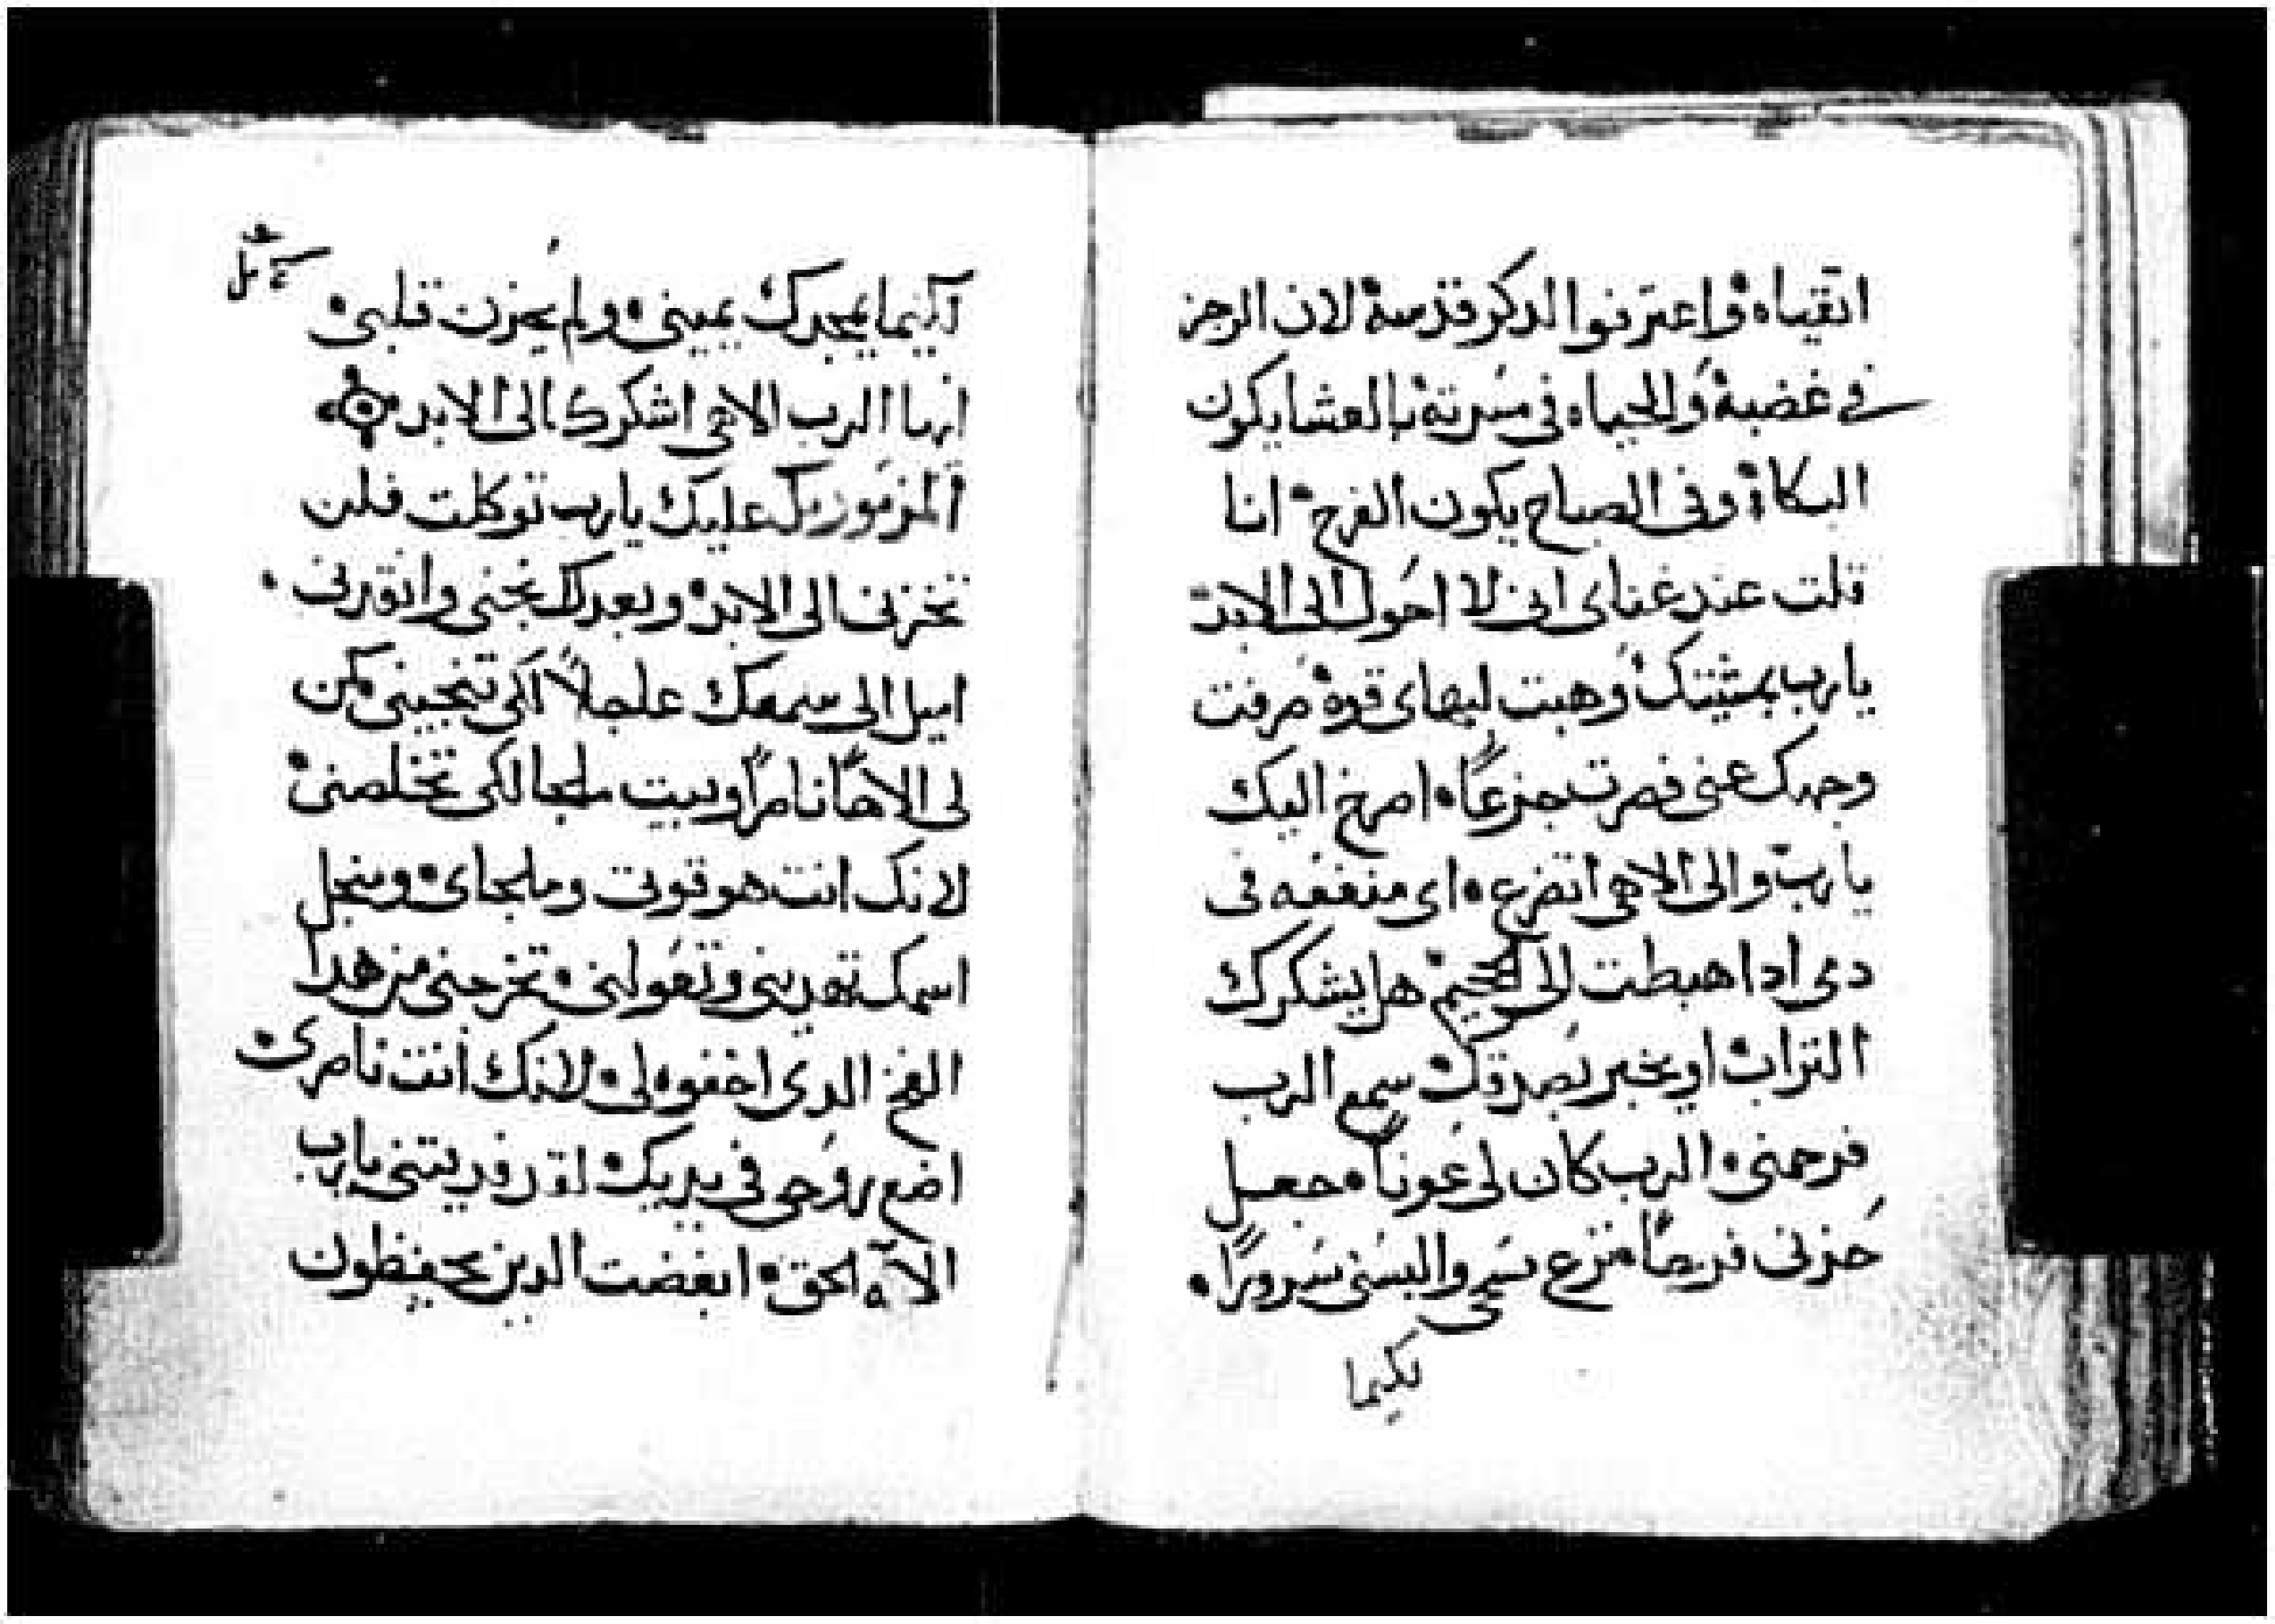 اتقياه واعترفوا لدكر قدسه لان الرجز
في غضبه والحياه في مسرته بالعشا يكون
البكاء وفي الصباح يكون الفرح انا
قلت عند غناي اني لا احول الى الابد
يارب بمشيتك وهبت لبهاي قوه صرفت
وجهك عني فصرت جزعًا اصرخ اليك
يارب والى الاهي اتضرع اي منفعه في
دمي ادا هبطت الى الجحيم هل يشكرك
التراب او يخبر بصدقك سمع الرب
فرحمني الرب كان لي عونًا جعل
حزني فرحًا مزع مسحي والبسني سرورًا
لكيما
لكيما يمجدك يميني ولم يحزن قلبي
ايها الرب الاهي اشكرك الى الابد
المزمور عليك يارب توكلت فلن
تخزني الى الابد وبعدلك نجني وانقدني
اميل الي سمعك عاجلاً لكي تنجيني كن
لي الاهًا ناصرًا وبيت ملجا لكي تخلصني
لانك انت هو قوتي وملجاي ومنجل
اسمك تهديني وتعولني تخرجني من هدا
الفخ الدي اخفوه لي لانك انت ناصري
اضع روحي في يديك لقد فديتني يارب
الاه الحق ابغضت الدين يحفظون